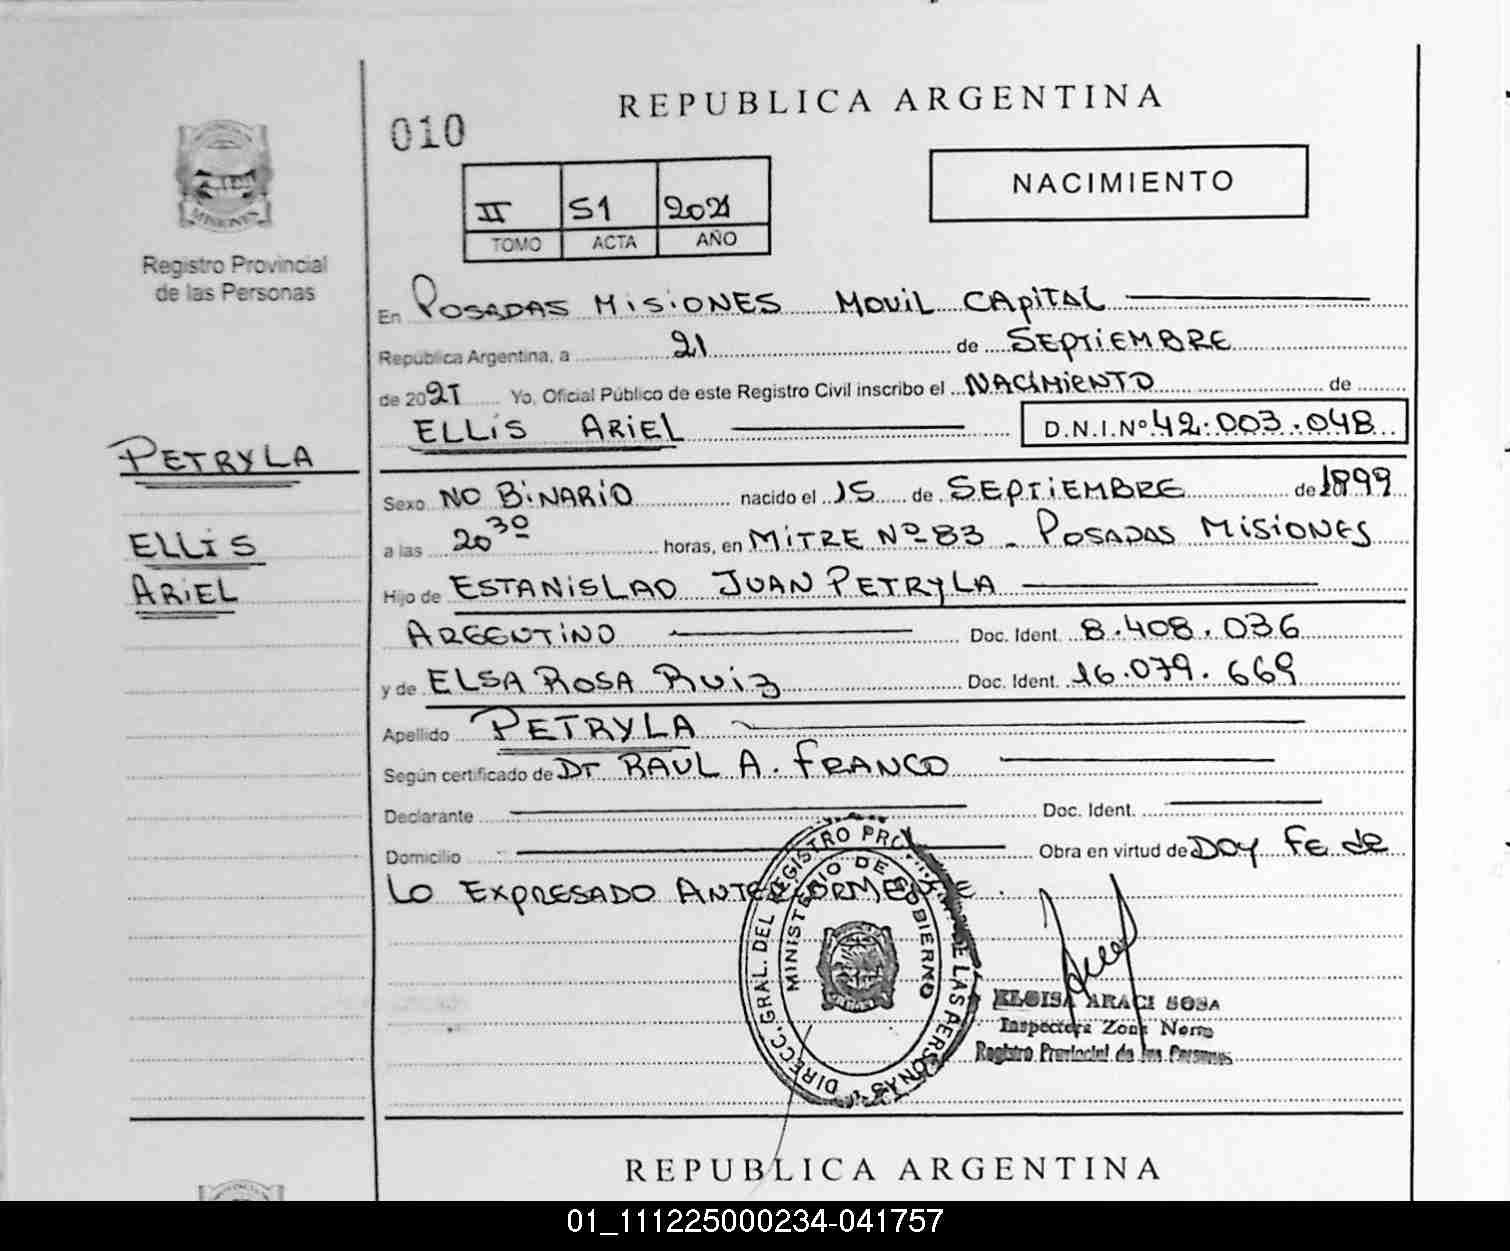 REPUBLICA ARGENTINA
010
NACIMIENTO
II S1 2021
TOMO ACTA AÑO
MISIONES
Registro Provincial
de las Personas
En POSADAS MISIONES MOVIL CAPITAL
República Argentina, a 21 de SEPTIEMBRE
de 2021 Yo, Oficial Público de este Registro Civil inscribo el NACIMIENTO de
ELLIS ARIEL D.N.I.Nº 42.003.048
PETRYLA
ELLIS
ARIEL
Sexo NO BINARIO nacido el 15 de SEPTIEMBRE de 1899
a las 20 30 horas, en MITRE Nº 83 - POSADAS MISIONES
Hijo de ESTANISLAO JUAN PETRYLA
ARGENTINO Doc. Ident. 8.408.036
y de ELSA ROSA RUIZ Doc. Ident. 16.079.669
Apellido PETRYLA
Según certificado de Dr RAUL A. FRANCO
Declarante Doc. Ident.
Domicilio Obra en virtud de DOY FE de
LO EXPRESADO ANTERIORMENTE.
DIRECC. GRAL. DEL REGISTRO PROV. DE LAS PERSONAS
MINISTERIO DE GOBIERNO
ELOISA ARACI SOSA
Inspectora Zona Norte
Registro Provincial de las Personas
REPUBLICA ARGENTINA
01_111225000234-041757